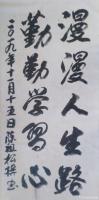 漫漫人生路
勤勤学习心
二〇一九年十一月十五日